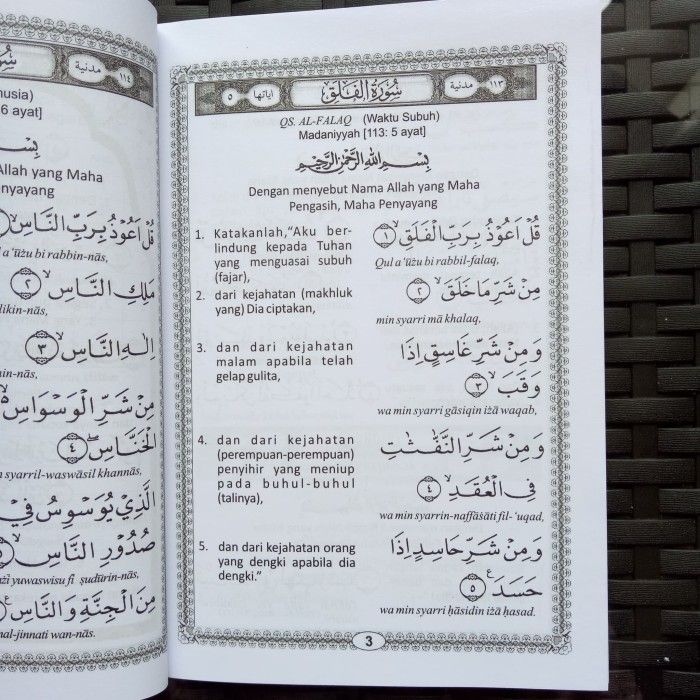 سُورَةُ
مدنية ١١٤
usia)
6 ayat]
بِسْ
Allah yang Maha
Penyayang
قُلْ اَعُوْذُ بِرَبِّ النَّاسِۙ
Qul a 'ūżu bi rabbin-nās,
مَلِكِ النَّاسِۙ ﴿٢﴾
ilikin-nās,
اِلٰهِ النَّاسِۙ ﴿٣﴾
hin-nās,
مِنْ شَرِّ الْوَسْوَاسِ
الْخَنَّاسِۖ ﴿٤﴾
n syarril-waswāsil khannās,
الَّذِيْ يُوَسْوِسُ فِيْ
صُدُوْرِ النَّاسِۙ
zī yuwaswisu fī ṣudūrin-nās,
مِنَ الْجِنَّةِ وَالنَّاسِ
nal-jinnati wan-nās.
٥ اياتها سُورَةُ الْفَلَقِ مدنية ١١٣
QS. AL-FALAQ (Waktu Subuh)
Madaniyyah [113: 5 ayat]
بِسْمِ اللّٰهِ الرَّحْمٰنِ الرَّحِيْمِ
Dengan menyebut Nama Allah yang Maha
Pengasih, Maha Penyayang
1. Katakanlah,"Aku ber-
lindung kepada Tuhan
yang menguasai subuh
(fajar),
قُلْ اَعُوْذُ بِرَبِّ الْفَلَقِۙ ﴿١﴾
Qul a 'ūżu bi rabbil-falaq,
2. dari kejahatan (makhluk
yang) Dia ciptakan,
مِنْ شَرِّ مَا خَلَقَۙ ﴿٢﴾
min syarri mā khalaq,
3. dan dari kejahatan
malam apabila telah
gelap gulita,
وَمِنْ شَرِّ غَاسِقٍ اِذَا
وَقَبَۙ ﴿٣﴾
wa min syarri gāsiqin iżā waqab,
4. dan dari kejahatan
(perempuan-perempuan)
penyihir yang meniup
pada buhul-buhul
(talinya),
وَمِنْ شَرِّ النَّفّٰثٰتِ
فِى الْعُقَدِۙ ﴿٤﴾
wa min syarrin-naffāṡāti fil-'uqad,
5. dan dari kejahatan orang
yang dengki apabila dia
dengki."
وَمِنْ شَرِّ حَاسِدٍ اِذَا
حَسَدَ ﴿٥﴾
wa min syarri ḥāsidin iżā ḥasad.
3